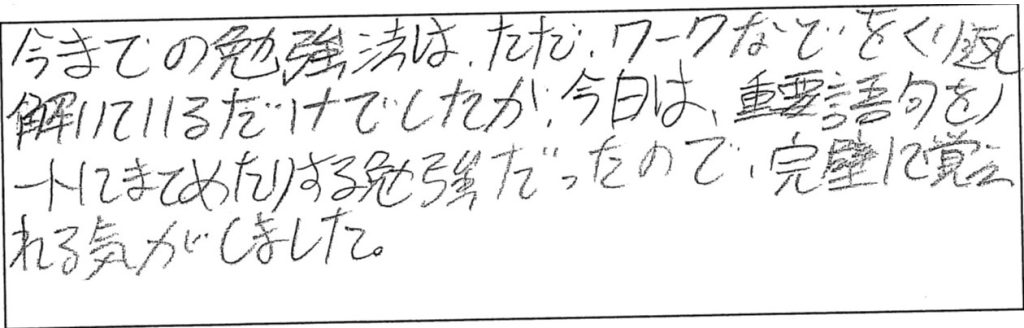 今までの勉強法は、ただ、ワークなどをくり返し
解いているだけでしたが、今日は、重要語句をノ
ートにまとめたりする勉強だったので、完璧に覚えら
れる気がしました。